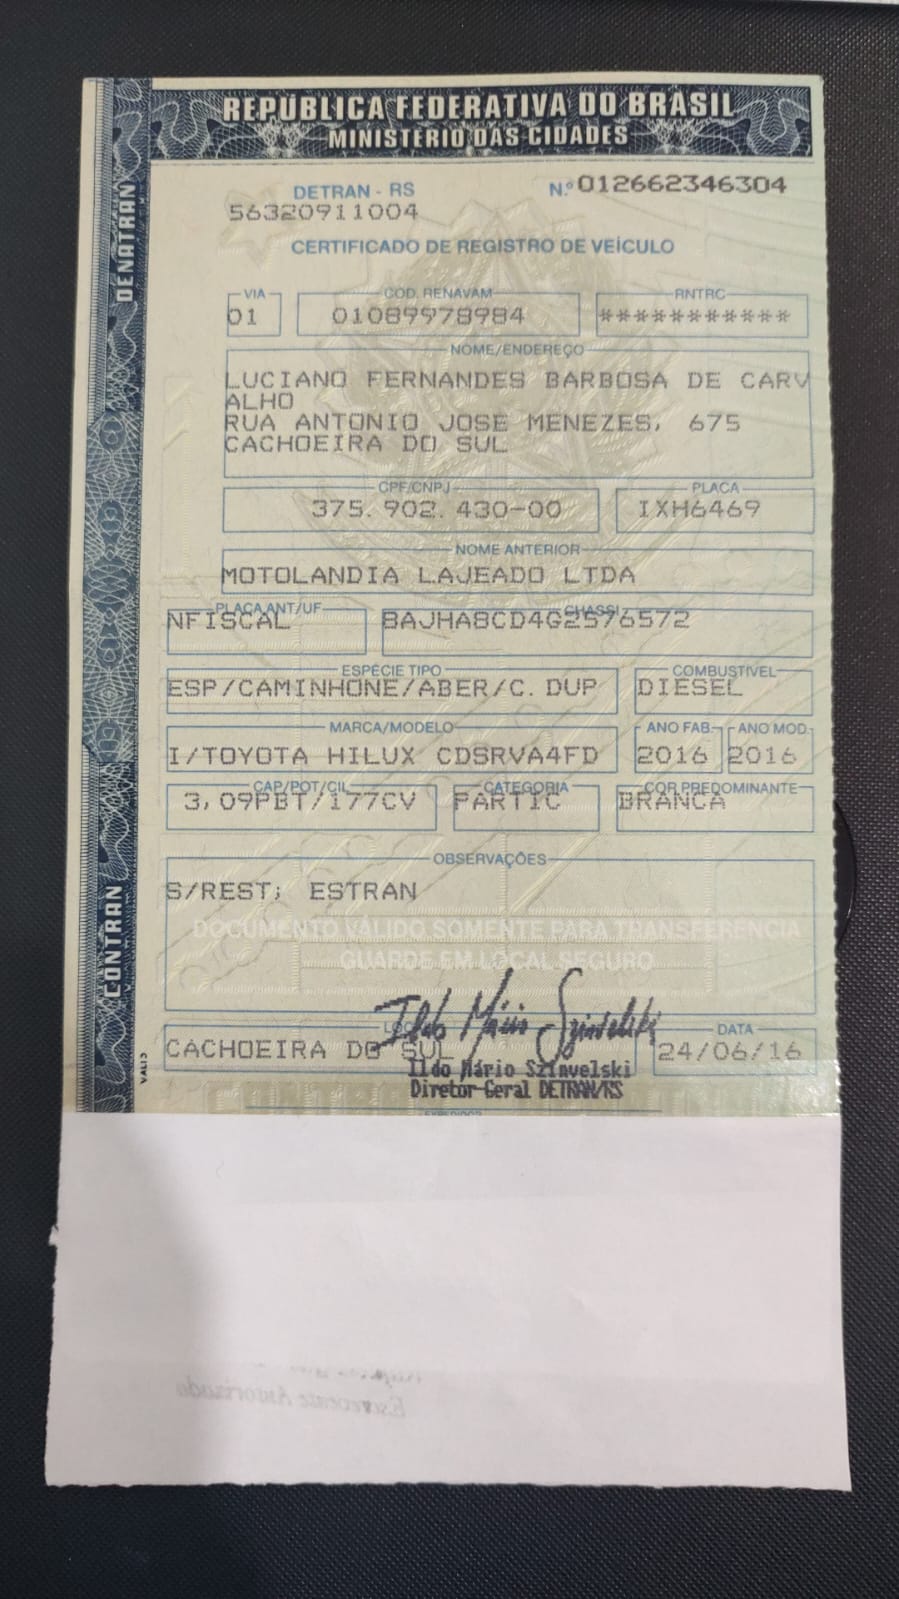 REPÚBLICA FEDERATIVA DO BRASIL
MINISTÉRIO DAS CIDADES
DENATRAN
CONTRAN
DETRAN - RS
Nº 012662346304
56320911004
CERTIFICADO DE REGISTRO DE VEÍCULO
VIA
01
COD. RENAVAM
01089978984
RNTRC
***********
NOME/ENDEREÇO
LUCIANO FERNANDES BARBOSA DE CARV
ALHO
RUA ANTONIO JOSE MENEZES, 675
CACHOEIRA DO SUL
CPF/CNPJ
375.902.430-00
PLACA
IXH6469
NOME ANTERIOR
MOTOLANDIA LAJEADO LTDA
PLACA ANT/UF
NFISCAL
CHASSI
8AJHA8CD4G2576572
ESPÉCIE TIPO
ESP/CAMINHONE/ABER/C. DUP
COMBUSTÍVEL
DIESEL
MARCA/MODELO
I/TOYOTA HILUX CDSRVA4FD
ANO FAB.
2016
ANO MOD.
2016
CAP/POT/CIL
3,09PBT/177CV
CATEGORIA
PARTIC
COR PREDOMINANTE
BRANCA
OBSERVAÇÕES
S/REST; ESTRAN
DOCUMENTO VÁLIDO SOMENTE PARA TRANSFERÊNCIA
GUARDE EM LOCAL SEGURO
CACHOEIRA DO SUL
Ildo Mário Szinvelski
Ildo Mário Szinvelski
Diretor-Geral DETRAN/RS
DATA
24/06/16
Escrevente Autorizado